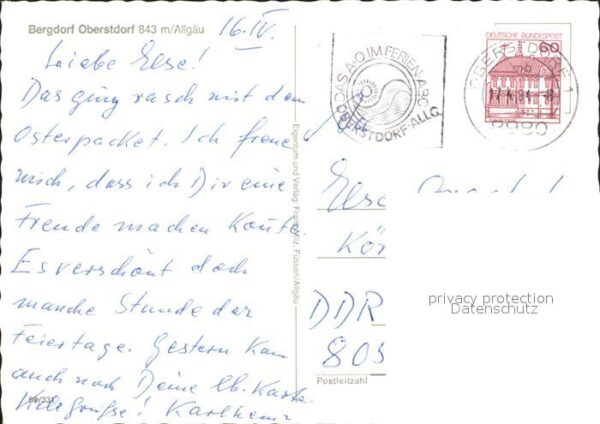 Bergdorf Oberstdorf 843 m/Allgäu
16. IV.
Liebe Else!
Das ging rasch mit dem
Osterpacket. Ich freue
mich, dass ich Dir eine
Freude machen konnte.
Es verschönt doch
manche Stunde der
Feiertage. Gestern kam
auch noch Deine lb. Karte.
Viele Grüße! Karlheinz
59/331
Eigentum und Verlag: Franz Milz, Füssen/Allgäu
DAS A·O IM FERIEN-ABC
OBERSTDORF-ALLG.
DEUTSCHE BUNDESPOST
60
OBERSTDORF 1
17.4.84-8
8980
Else
Kör
DDR
805
Postleitzahl
privacy protection
Datenschutz